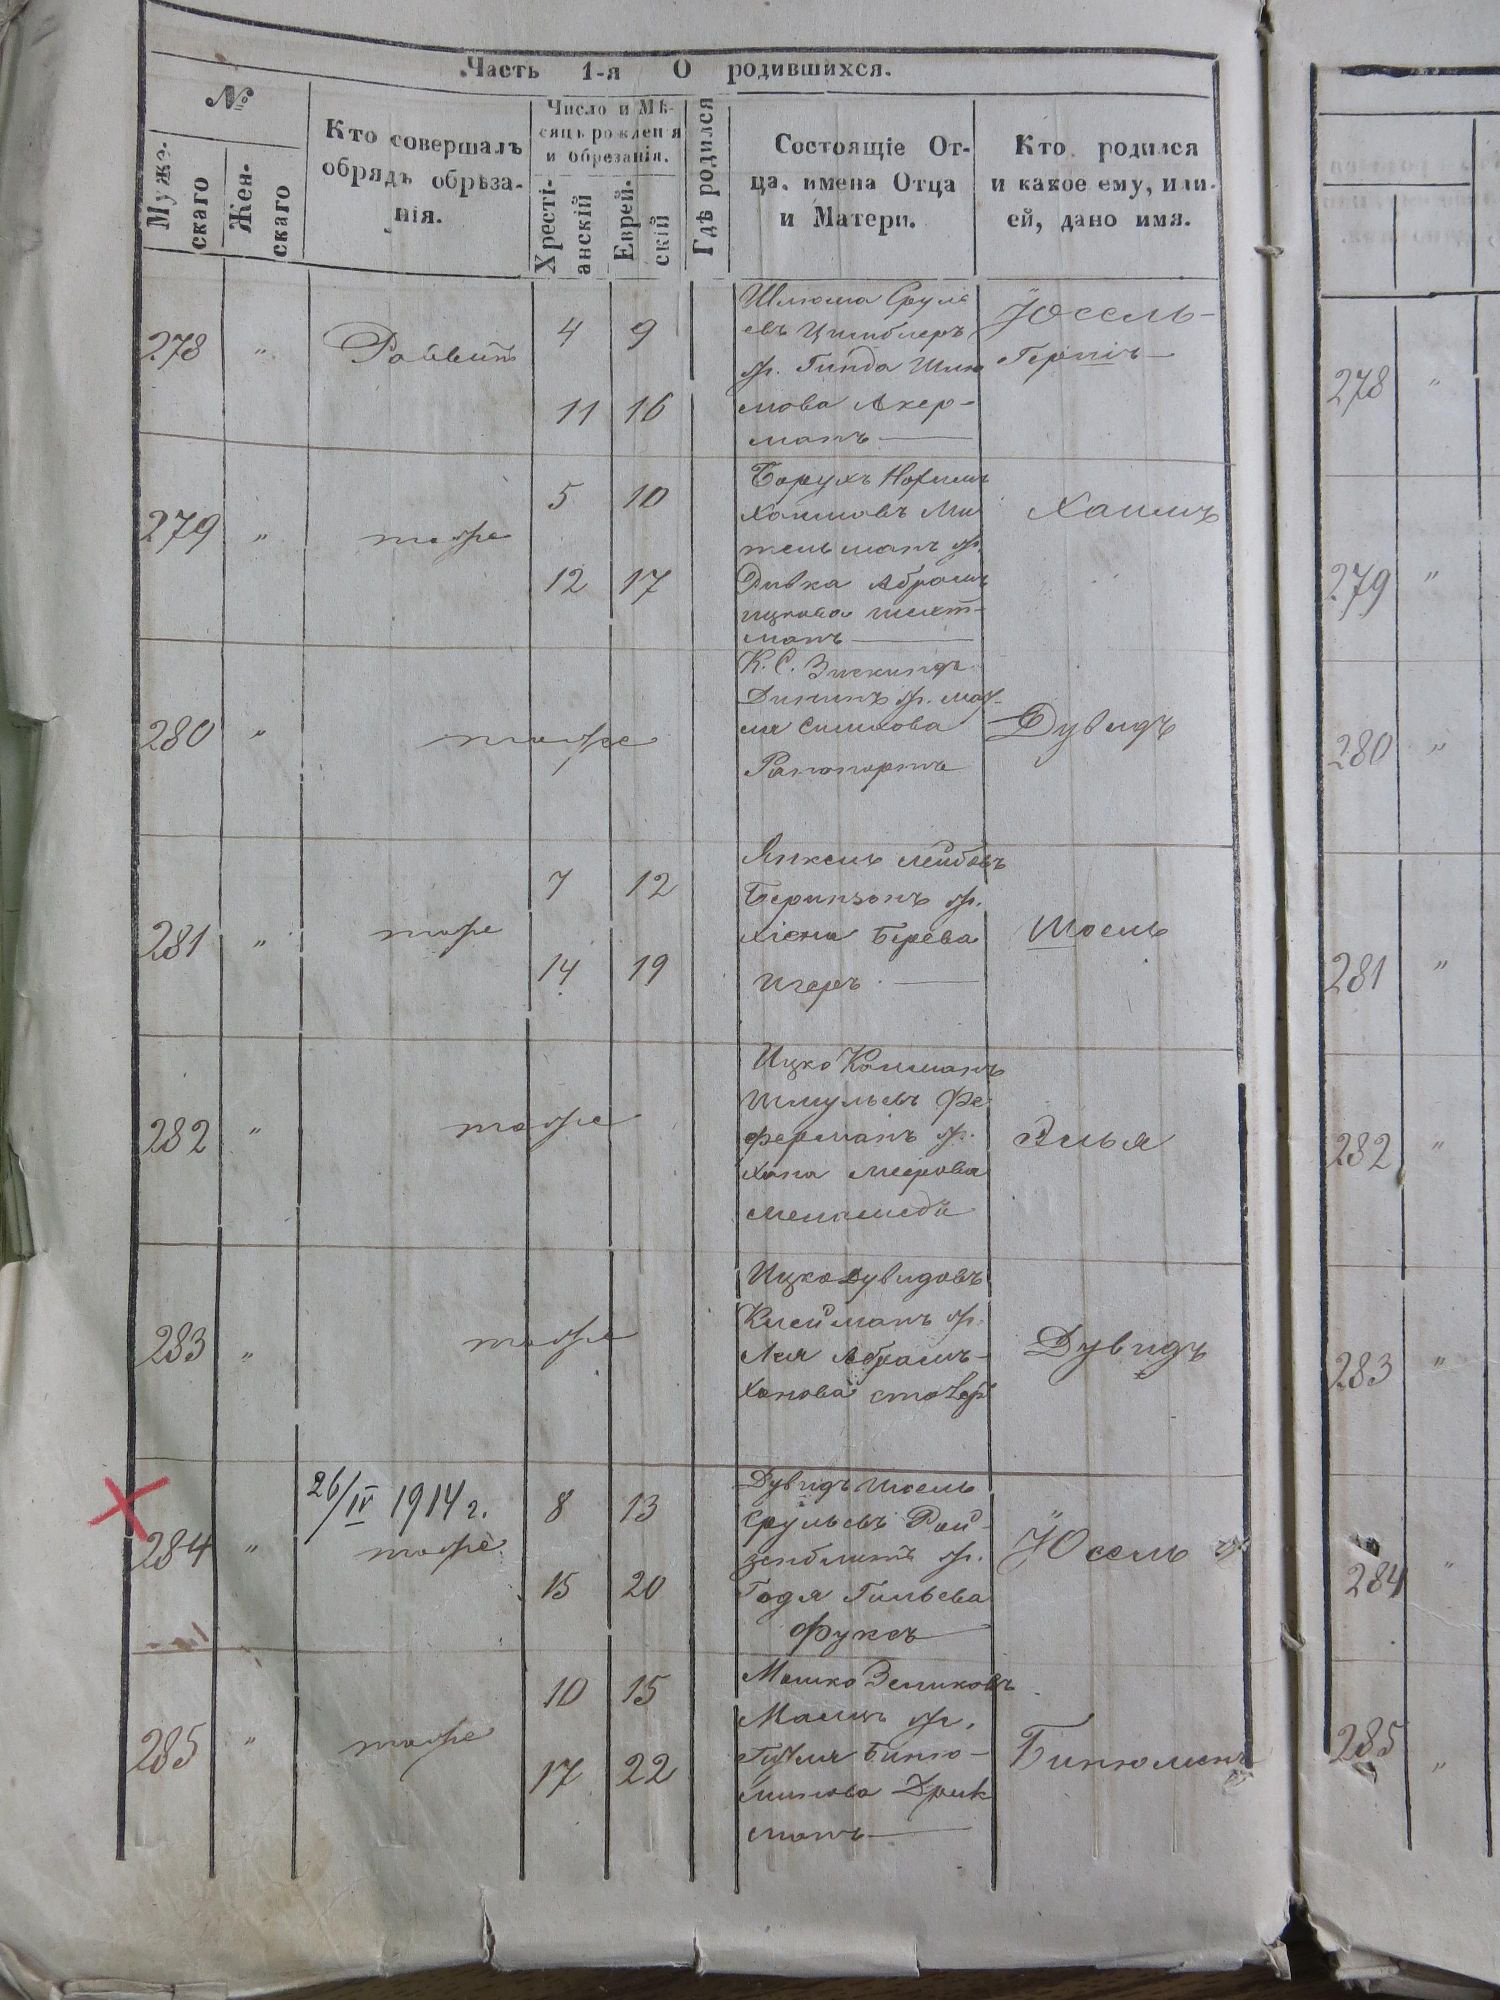 Часть 1-я О родившихся.
№
Муже-
скаго
Жен-
скаго
Кто совершалъ
обрядъ обрѣза-
нія.
Число и Мѣ-
сяцъ рожденія
и обрезанія.
Христі-
анскій
Еврей-
скій
Гдѣ родился
Состоящіе От-
ца, имена Отца
и Матери.
Кто родился
и какое ему, или
ей, дано имя.
278 " 4 9
11 16
Шлюма Сруле
евъ Цимблеръ
Гинда Шлю
мова Акер-
манъ
Юссель-
Гершъ
279 " тотже 5 10
12 17
Борухъ Нохимъ
Хаимовъ Ми
тельманъ
Ривка Абрамъ
Ицкова Шихт-
манъ
Хаимъ
280 " тотже
К. С. Зискиндъ
Симхова
Рапопортъ
Дувидъ
281 " тотже 7 12
14 19
Янкель Лейбовъ
Беринзонъ
Берева
Игеръ
Шоель
282 " тотже
Ицко Калманъ
Шмулевъ Фе
ферманъ
Хана Меерова
Элья
283 " тотже
Ицко Дувидовъ
Клейманъ
Лея Абрамъ-
Ханова
Дувидъ
284 " 26/IV 1914 г.
тотже
8 13
15 20
Дувидъ Шоель
Срульевъ Рой
зенблитъ
Годя Гильева
Фуксъ
Юсель
285 " тотже 10 15
17 22
Мошко Зеликовъ
Малицъ
Гитля Биню-
минова Дрик
манъ
Бинюменъ
278 "
279 "
280 "
281 "
282 "
283 "
284 "
285 "